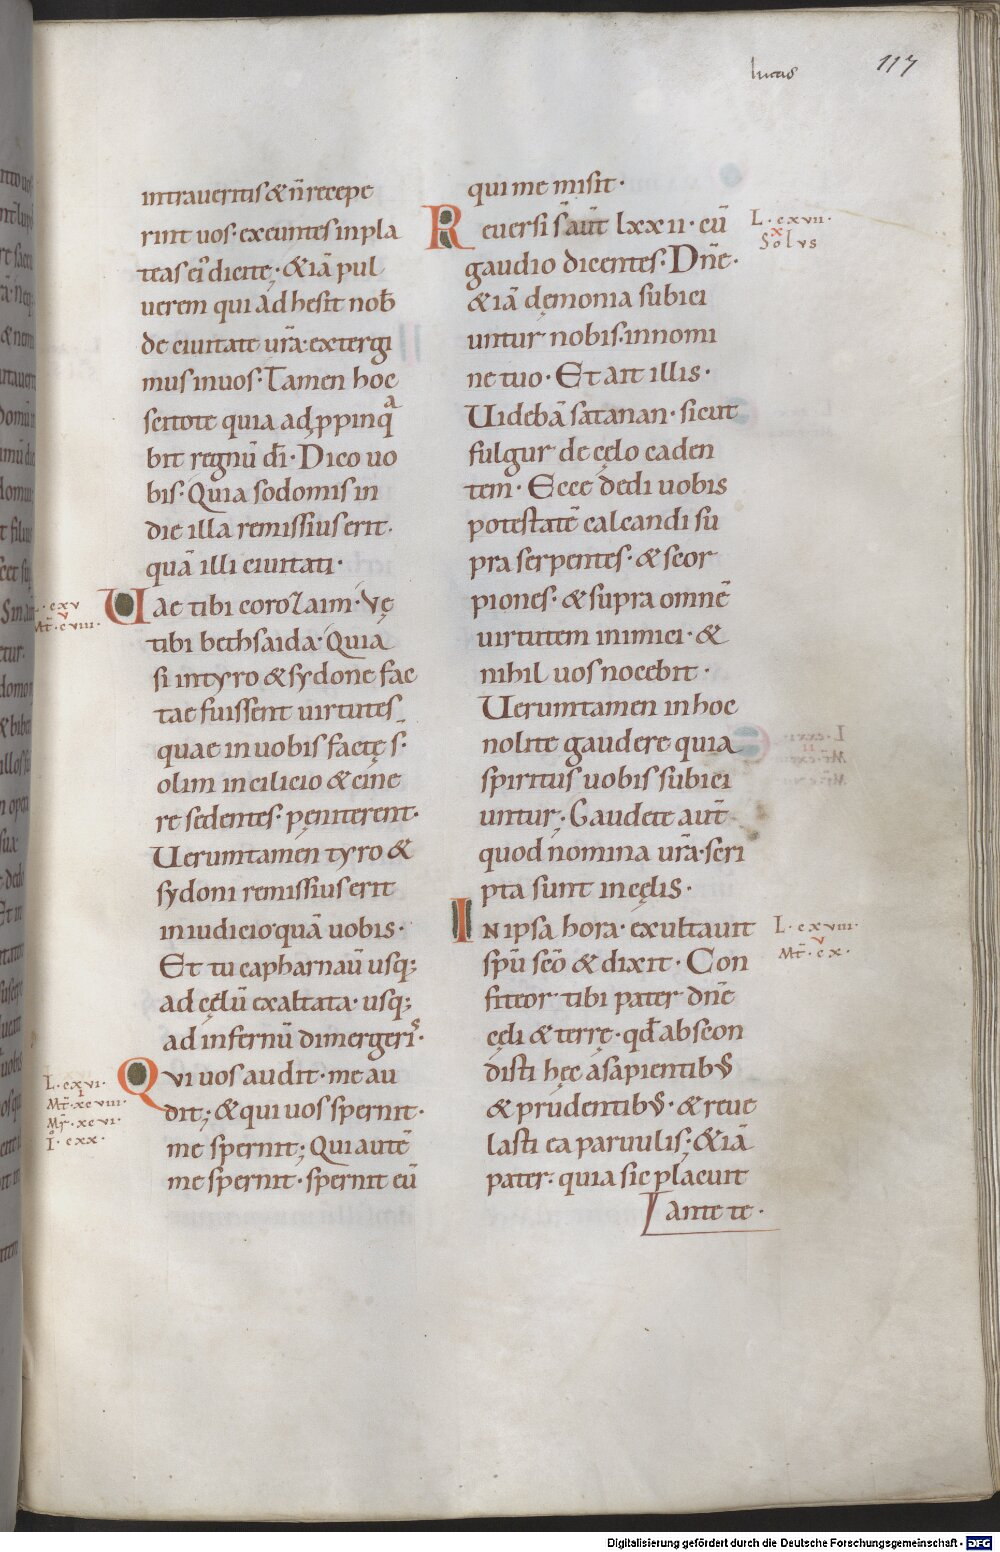 lucas
117
intraueritis & n̄ recepe
rint uos· exeuntes in pla
teas ei᷒ dicite; & iā pul
uerem qui adhesit nob̄
de ciuitate ur̄a· extergi
mus in uos· Tamen hoc
scitote quia adꝓpinqᵃ
bit regnū dī· Dico uo
bis· Quia sodomis in
die illa remissius erit·
quā illi ciuitati·
Uae tibi corozaim· Vę
tibi bethsaida· Quia
si in tyro & sydone fac
tae fuissent uirtutes
quae in uobis factę s̄·
olim in cilicio & cine
re sedentes· pęniterent·
Uerumtamen tyro &
sydoni remissius erit
in iudicio quā uobis·
Et tu capharnaū usq;
ad cęlū exaltata· usq;
ad infernū dimergeris·
Qui uos audit· me au
dit; & qui uos spernit·
me spernit; Qui autē
me spernit· spernit eū
L·cxv
v
Mt̄·cviii·
L·cxvi·
i
Mt̄·xcviii·
Mr̄·xcvi·
I·cxx·
qui me misit·
Reuersi s̄ aut̄ lxxii· cū
gaudio dicentes· Dn̄e·
& iā dęmonia subici
untur nobis· in nomi
ne tuo· Et ait illis·
Uidebā satanan· sicut
fulgur de cęlo caden
tem· Ecce dedi uobis
potestatē calcandi su
pra serpentes· & scor
piones· & supra omnē
uirtutem inimici· &
nihil uos nocebit·
Uerumtamen in hoc
nolite gaudere quia
spiritus uobis subici
untur; Gaudete aut̄
quod nomina ur̄a· scri
pta sunt in cęlis·
In ipsa hora· exultauit
spū scō & dixit· Con
fiteor tibi pater dn̄e
cęli & terrę· qd̄ abscon
disti hęc a sapientib᷒
& prudentib᷒· & reue
lasti ea paruulis; & iā
pater· quia sic placuit
ante te·
L·cxvii·
x
Solus
L·cxviii·
v
Mt̄·cx·
Digitalisierung gefördert durch die Deutsche Forschungsgemeinschaft - DFG